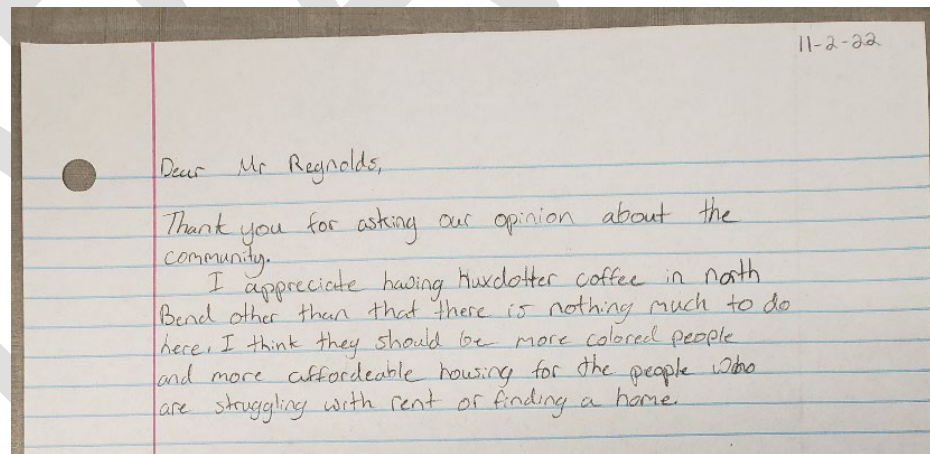 11-2-22
Dear Mr Reynolds,
Thank you for asking our opinion about the
community.
I appreciate having Huxdotter coffee in north
Bend other than that there is nothing much to do
here. I think they should be more colored people
and more affordeable housing for the people who
are struggling with rent or finding a home.